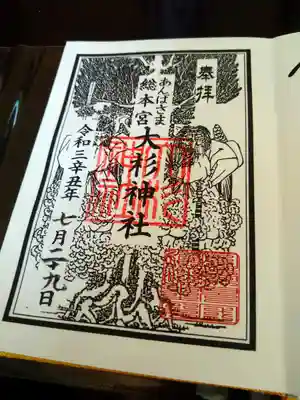 奉拝
あんばさま
総本宮
大杉神社
令和三辛丑年
七月二十九日